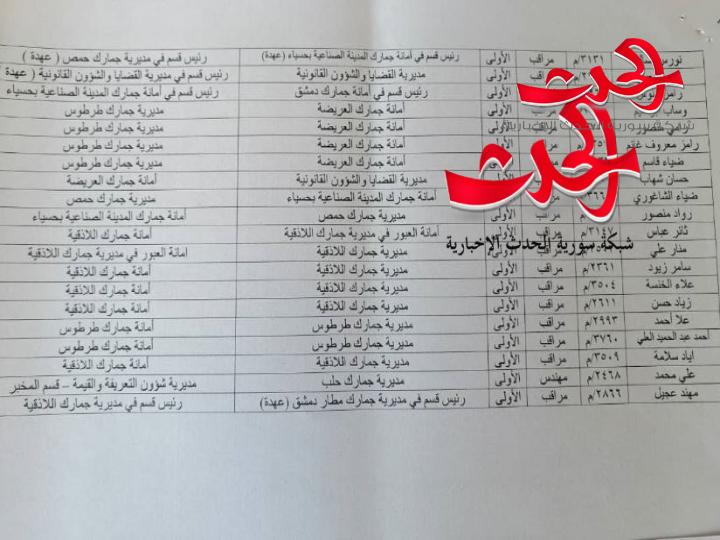 نورس ٣١٣١/م مراقب الأولى رئيس قسم في أمانة جمارك المدينة الصناعية بحسياء (عهدة) رئيس قسم في مديرية جمارك حمص ( عهدة )
الأولى مديرية القضايا والشؤون القانونية رئيس قسم في مديرية القضايا والشؤون القانونية ( عهدة
رامز الأولى رئيس قسم في أمانة جمارك دمشق رئيس قسم في أمانة جمارك المدينة الصناعية بحسياء
وساب أمانة جمارك العريضة مديرية جمارك طرطوس
رامي خضور أمانة جمارك العريضة مديرية جمارك طرطوس
رامز معروف غنم أمانة جمارك العريضة مديرية جمارك طرطوس
ضياء قاسم أمانة جمارك العريضة مديرية جمارك طرطوس
حسان شهاب مديرية القضايا والشؤون القانونية أمانة جمارك العريضة
ضياء الشاغوري أمانة جمارك المدينة الصناعية بحسياء مديرية جمارك حمص
رواد منصور الأولى مديرية جمارك حمص أمانة جمارك المدينة الصناعية بحسياء
ثائر عباس ٣١٤٧/م مراقب الأولى أمانة العبور في مديرية جمارك اللاذقية أمانة جمارك اللاذقية
منار علي مديرية جمارك اللاذقية امانة العبور في مديرية جمارك اللاذقية
سامر زيود ٢٣٦١/م مراقب الأولى مديرية جمارك اللاذقية أمانة جمارك اللاذقية
علاء الخنسة ٣٥٠٤/م مراقب الأولى مديرية جمارك اللاذقية أمانة جمارك اللاذقية
زياد حسن ٢٦١١/م مراقب الأولى مديرية جمارك اللاذقية أمانة جمارك اللاذقية
علا أحمد ٢٩٩٣/م مراقب الأولى مديرية جمارك طرطوس أمانة جمارك طرطوس
احمد عبد الحميد العلي ٣٧٦٠/م مراقب الأولى مديرية جمارك طرطوس أمانة جمارك طرطوس
اياد سلامة ٣٥٠٩/م مراقب الأولى مديرية جمارك اللاذقية أمانة جمارك اللاذقية
علي محمد ٢٤٦٨/م مهندس الأولى مديرية جمارك حلب مديرية شؤون التعريفة والقيمة – قسم المخبر
مهند عجيل ٢٨٦٦/م مراقب الأولى رئيس قسم في مديرية جمارك مطار دمشق (عهدة) رئيس قسم في مديرية جمارك اللاذقية
الحدث
الحدث
شبكة سورية الحدث الإخبارية